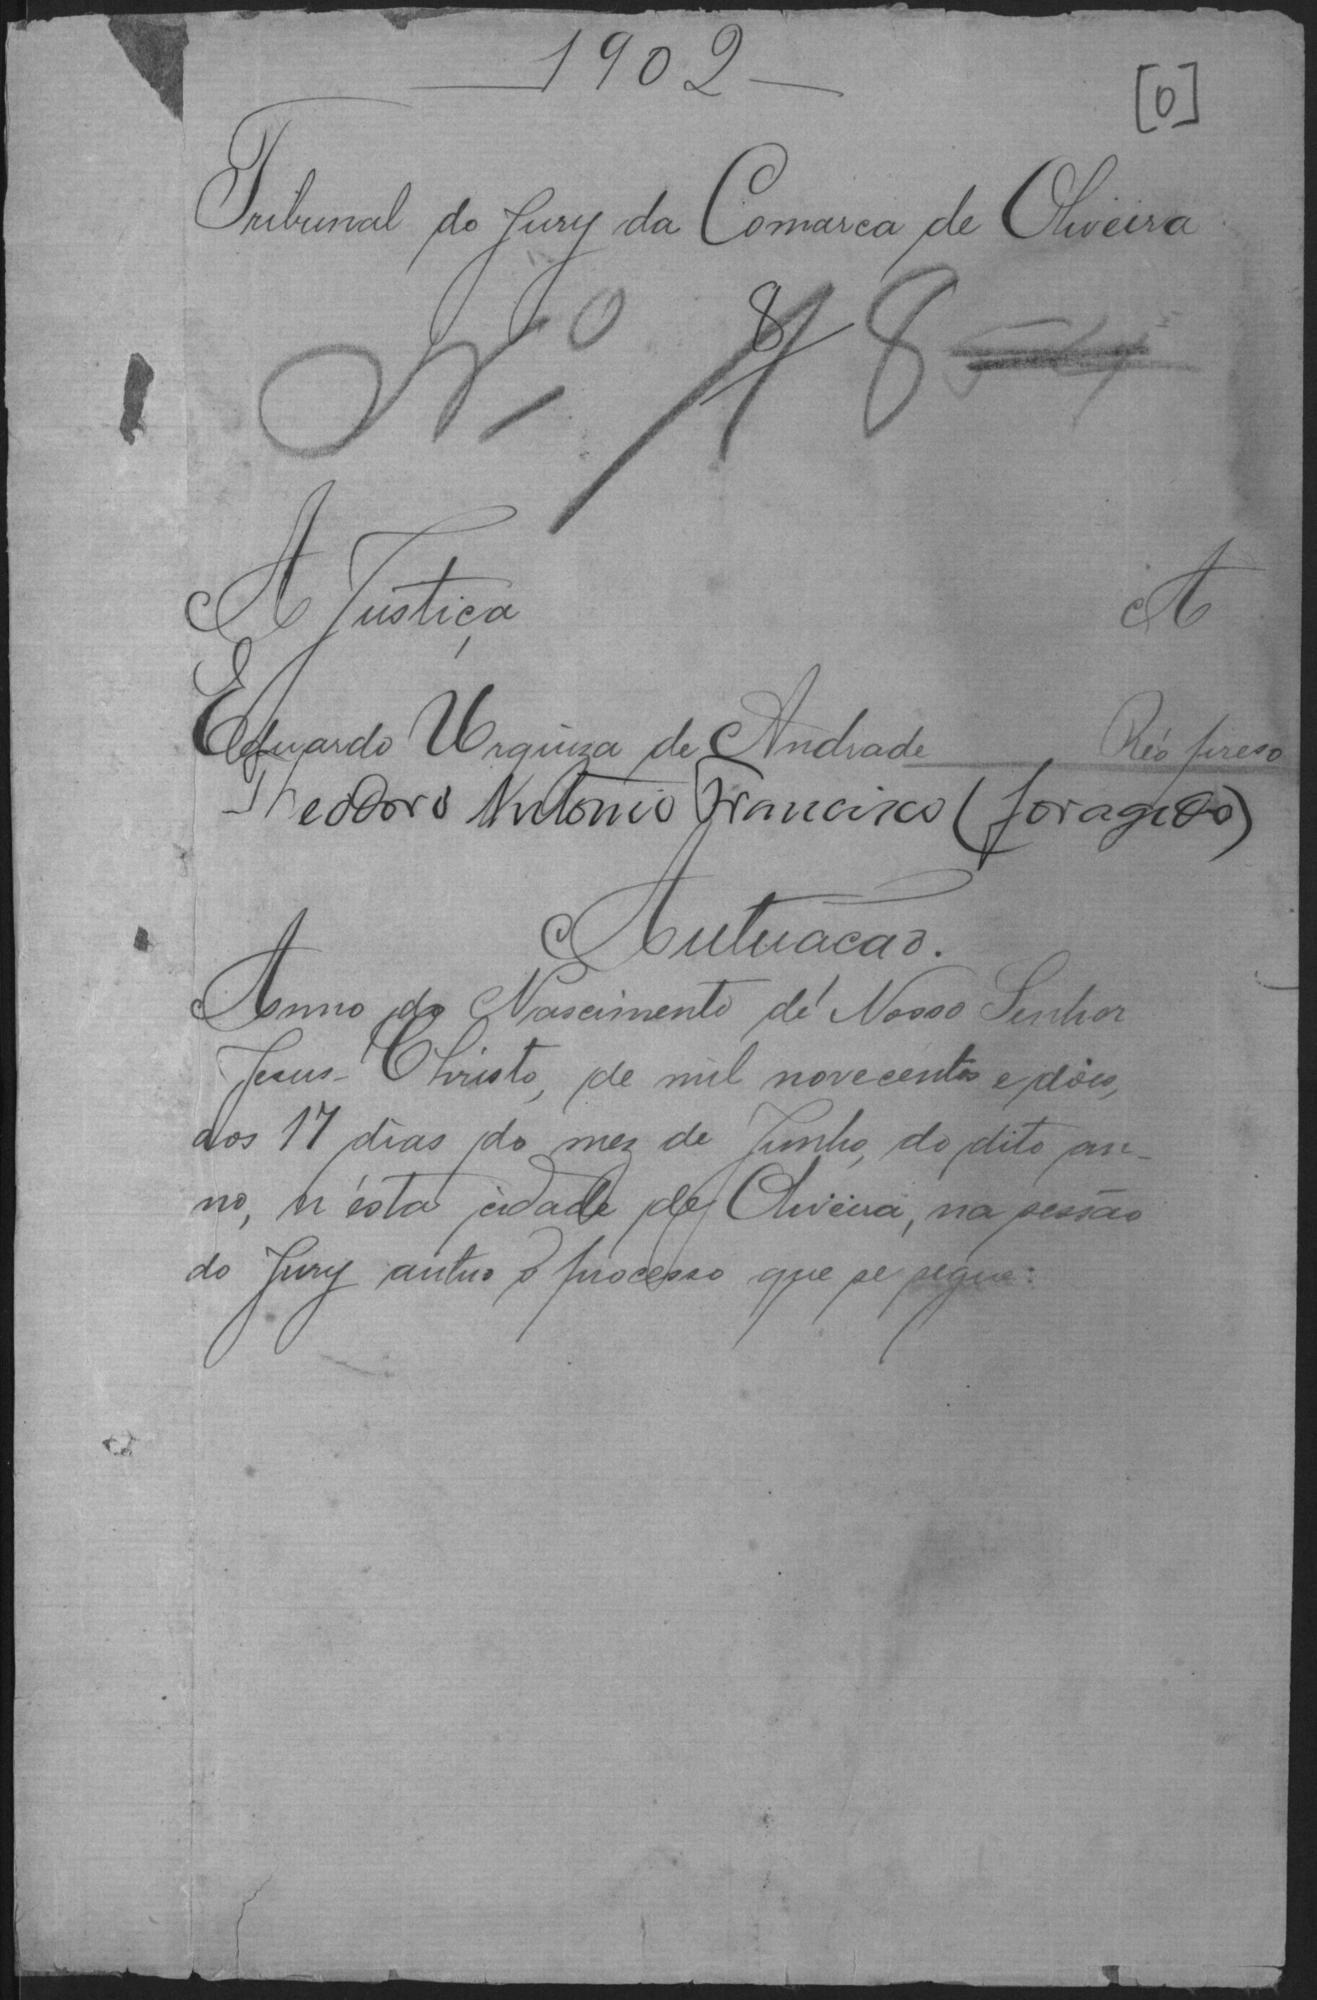 1902
[0]
Tribunal do Jury da Comarca de Oliveira
Nº 8
A Justiça A
Eduardo Urquiza de Andrade Réo preso
Theodoro Antonio Francisco (foragido)
Autuacao.
Anno do Nascimento de Nosso Senhor
Jesus Christo, de mil novecentos e dois,
aos 17 dias do mez de Junho, do dito an-
no, n'ésta cidade de Oliveira, na sessão
do Jury autuo o processo que se segue: